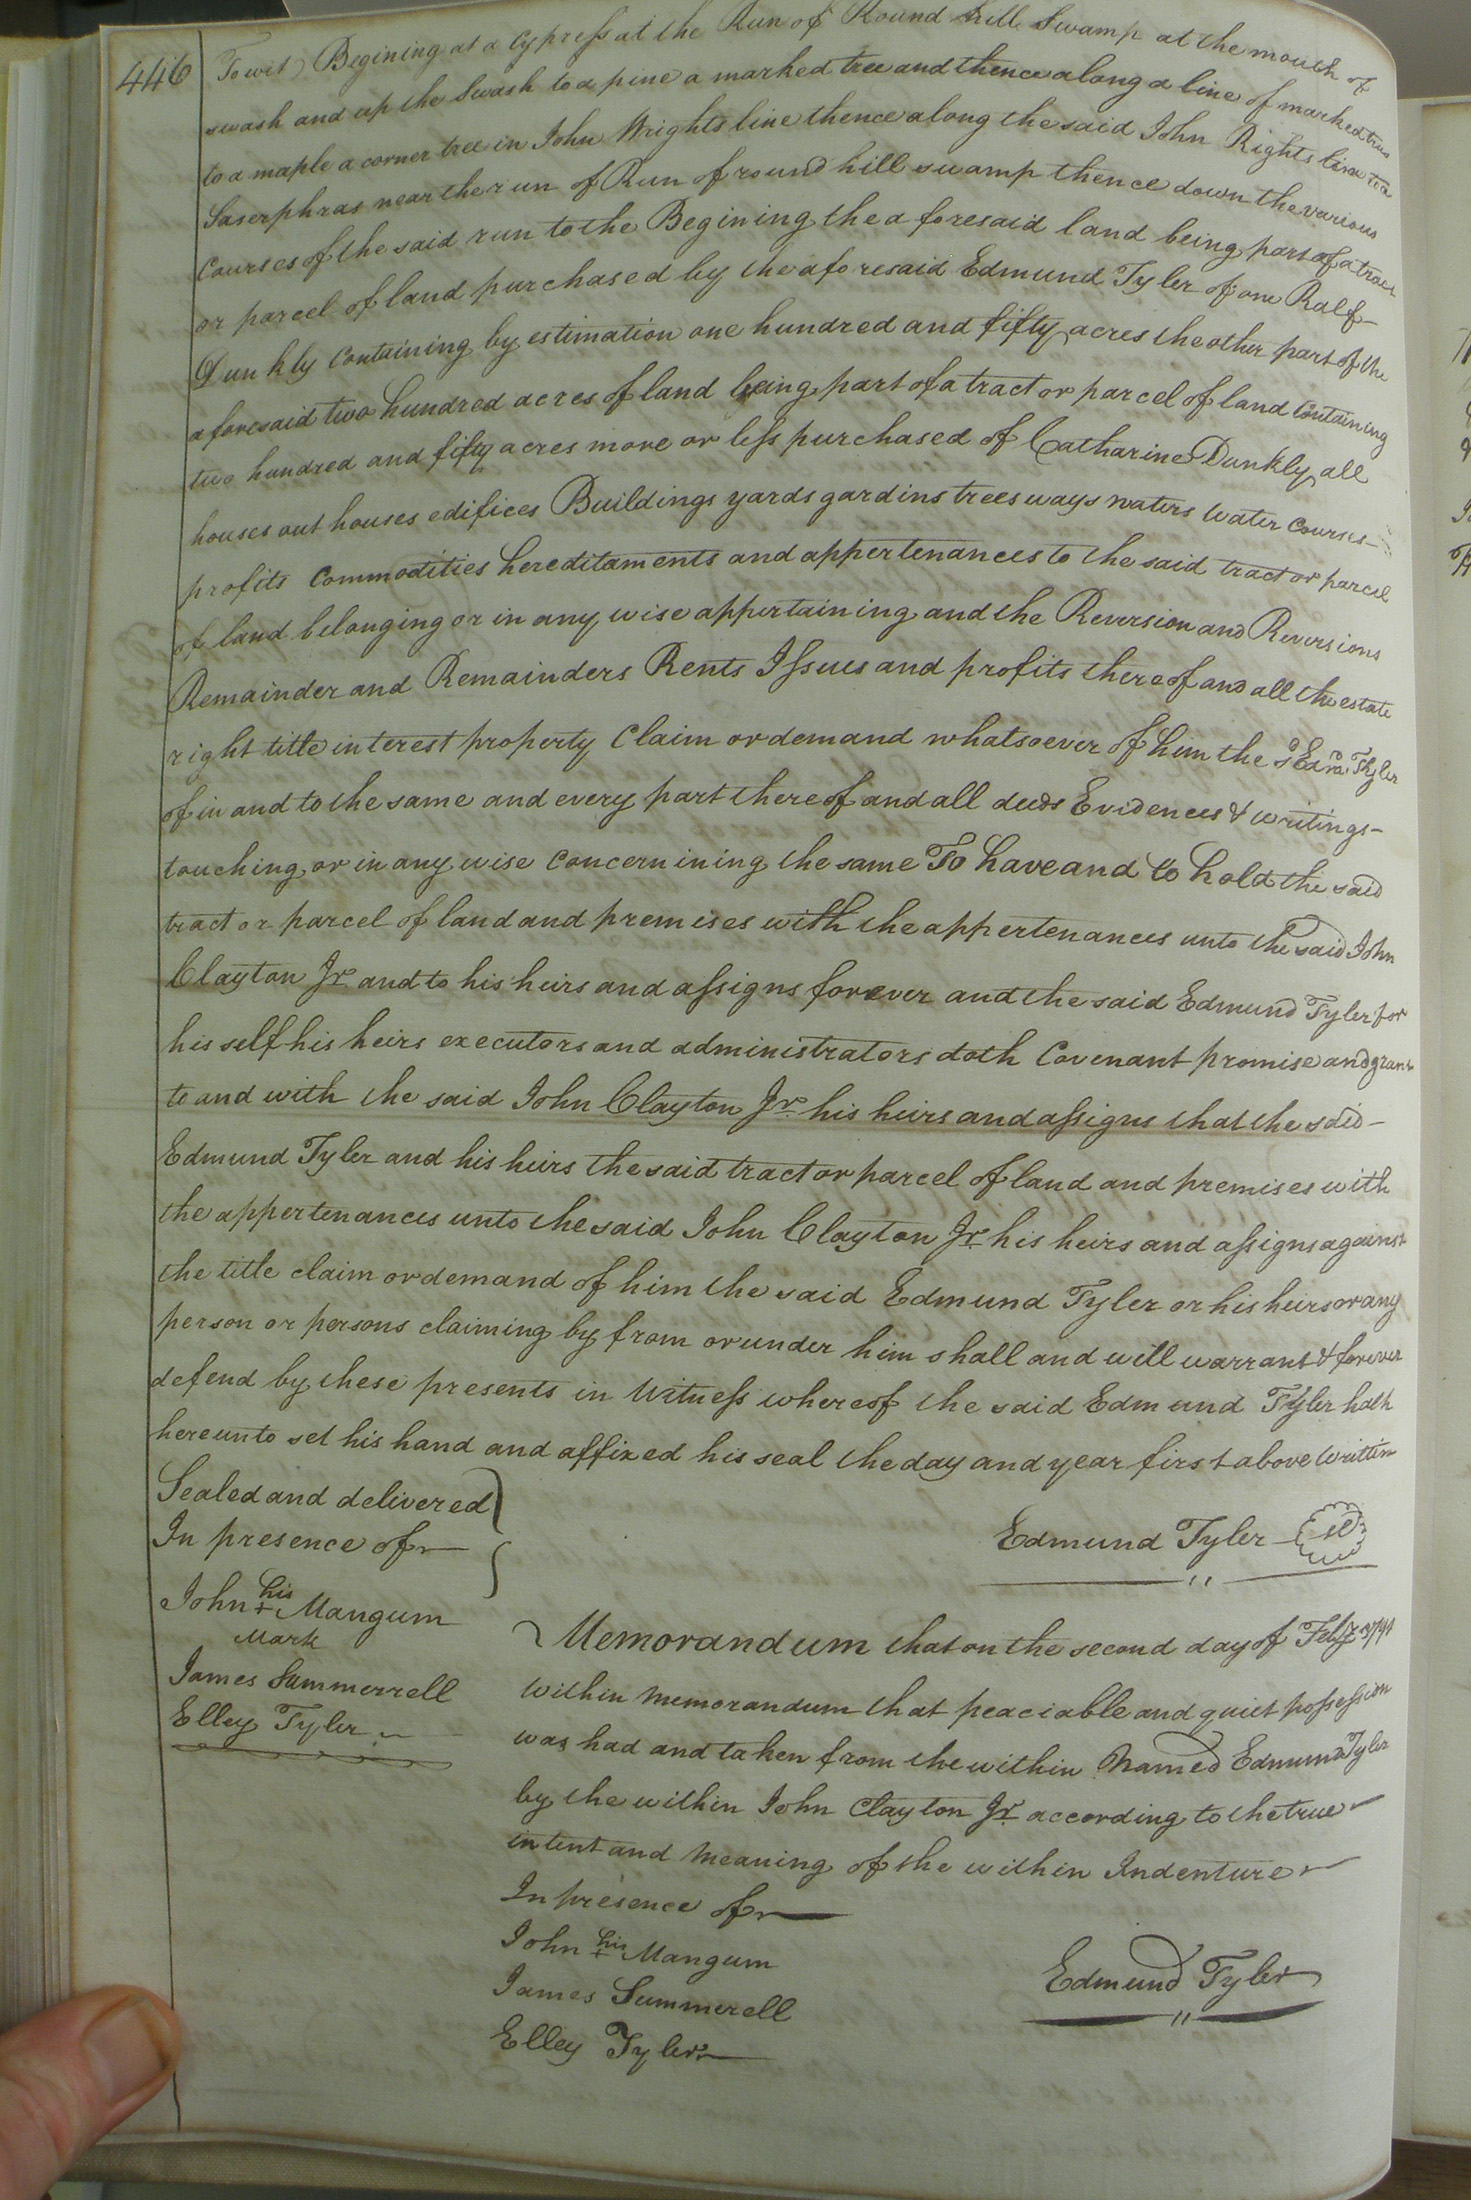 446
To wit) Begining at a Cypress at the Run of Round Hill Swamp at the mouth of
swash and up the Swash to a pine a marked tree and thence along a line of marked trees
to a maple a corner tree in John Wrights line thence along the said John Rights line to a
Saserphras near the run of Run of round hill swamp thence down the various
Courses of the said run to the Begining the aforesaid land being part of a tract
or parcel of land purchased by the aforesaid Edmund Tyler of one Ralf-
Dunkly Containing by estimation one hundred and fifty acres the other part of the
aforesaid two hundred acres of land being part of a tract or parcel of land Containing
two hundred and fifty acres more or less purchased of Catharine Dunkly all
houses out houses edifices Buildings yards gardins trees ways waters water Courses-
profits Commodities hereditaments and appertenances to the said tract or parcel
of land belonging or in any wise appertaining and the Reversion and Reversions
Remainder and Remainders Rents Issues and profits thereof and all the estate
right title interest property Claim or demand whatsoever of him the sd Edmd Tyler
of in and to the same and every part thereof and all deeds Evidences & writings-
touching or in any wise Concernining the same To have and to hold the said
tract or parcel of land and premises with the appertenances unto the said John
Clayton Jr and to his heirs and assigns forever and the said Edmund Tyler for
his self his heirs executors and administrators doth Covenant promise and grant
to and with the said John Clayton Jr. his heirs and assigns that the said-
Edmund Tyler and his heirs the said tract or parcel of land and premises with
the appertenances unto the said John Clayton Jr. his heirs and assigns against
the title claim or demand of him the said Edmund Tyler or his heirs or any
person or persons claiming by from or under him shall and will warrant & forever
defend by these presents in Witness whereof the said Edmund Tyler hath
hereunto set his hand and affixed his seal the day and year first above written
Sealed and delivered
In presence of
Edmund Tyler
John his + Mangum
Mark
James Summerrell
Elley Tyler
Memorandum that on the second day of Feby
within memorandum that peaciable and quiet possession
was had and taken from the within Named Edmund Tyler
by the within John Clayton Jr. according to the true
intent and meaning of the within Indenture
In presence of
John his + Mangum
James Summerell
Elley Tyler
Edmund Tyler